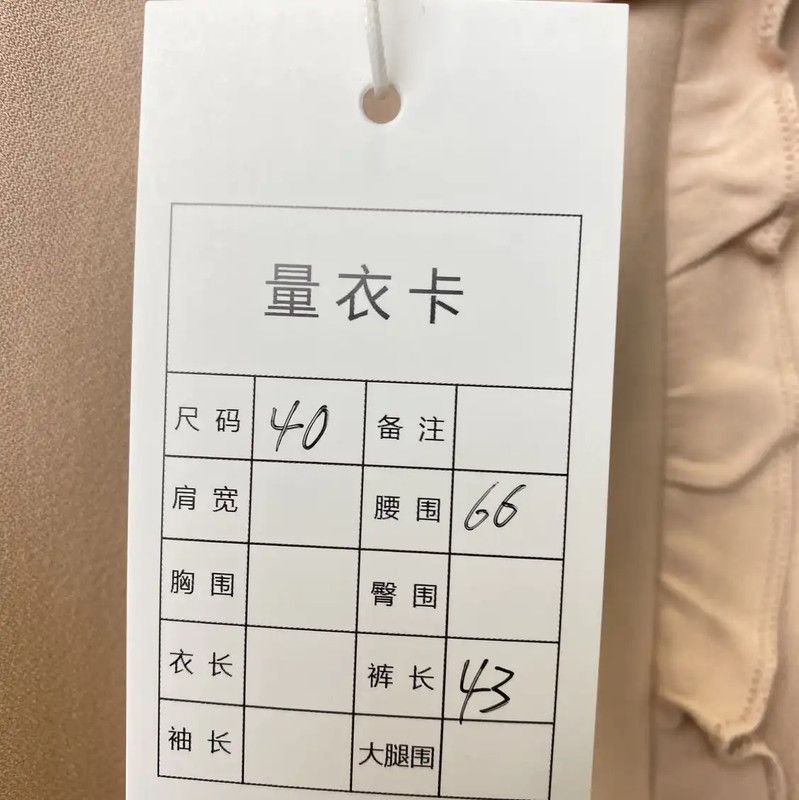 量衣卡
尺码 40 备注
肩宽 腰围 66
胸围 臀围
衣长 裤长 43
袖长 大腿围